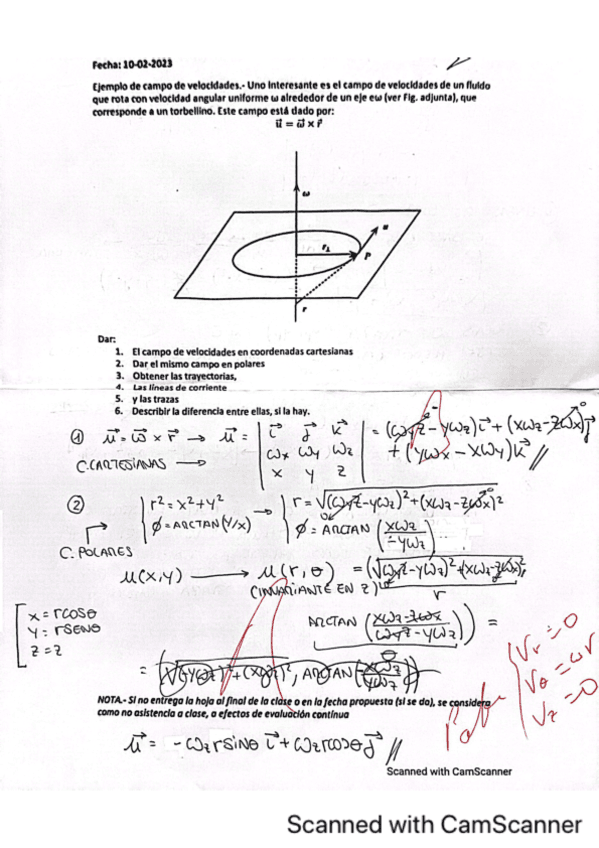 Fecha: 10-02-2023
Ejemplo de campo de velocidades.- Uno interesante es el campo de velocidades de un fluido
que rota con velocidad angular uniforme ω alrededor de un eje eω (ver Fig. adjunta), que
corresponde a un torbellino. Este campo está dado por:
u⃗ = ω⃗ x r⃗
ω
u
r⊥
P
r
Dar:
1. El campo de velocidades en coordenadas cartesianas
2. Dar el mismo campo en polares
3. Obtener las trayectorias,
4. Las líneas de corriente
5. y las trazas
6. Describir la diferencia entre ellas, si la hay.
① u⃗ = ω⃗ × r⃗ → u⃗ = | i⃗ j⃗ k⃗ | = (ωyz - yωz) i⃗ + (xωz - zωx) j⃗
C.CARTESIANAS → | ωx ωy ωz | + (yωx - xωy) k⃗ //
| x y z |
② { r² = x² + y² → { r = √((ωyz - yωz)² + (xωz - zωx)²
{ Ø = ARCTAN (Y/x) { Ø = ARCTAN (xωz / -yωz)
C. POLARES
u(x,y) → u(r, θ) = (√(ωyz - yωz)² + (xωz - zωx)²,
(INVARIANTE EN Z) r
[ x = rcosθ
y = rsenθ
z = z
ARCTAN (xωz - zωx / ωyz - yωz)) =
θ
= (√(-yωz)² + (xωz)², ARCTAN (-xωz / yωz))
Vr = 0
Vθ = ωr
Vz = 0
NOTA.- Si no entrega la hoja al final de la clase o en la fecha propuesta (si se da), se considera
como no asistencia a clase, a efectos de evaluación continua
u⃗ = - ωz r sinθ i⃗ + ωz r cosθ j⃗ //
Scanned with CamScanner
Scanned with CamScanner